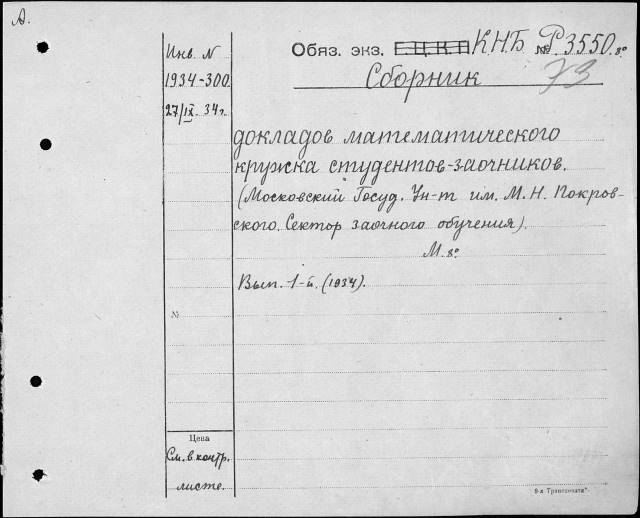 А.
Инв. N
1934-300
27/IX. 34 г.
Обяз. экз. Е.Ц.К.П КНБ № Р3550. 8°
Сборник 73
докладов математического
кружка студентов-заочников.
(Московский Госуд. Ун-т им. М.Н. Покров-
ского. Сектор заочного обучения).
М. 8°
Вып. 1-й. (1934).
№
Цена
См. в контр.
листе.